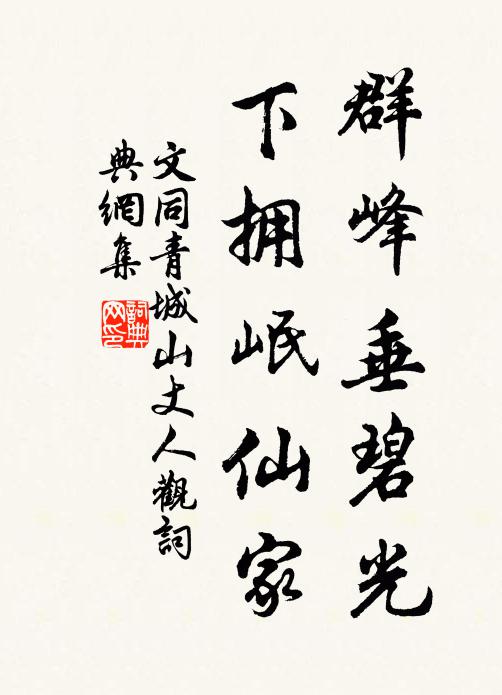 群峰垂碧光
下拥岷仙家
文同青城山丈人觀詞
典網集
詞典
网印